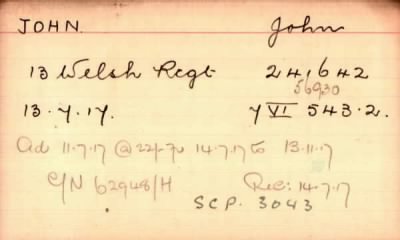 JOHN. John
13 Welsh Regt 241642
56930
13.7.17. 7 VI 543.2.
Ad 11.7.17 @ 14.7.17 to 13.11.17
C/N 62948/H Rec: 14.7.17
SCP. 3043